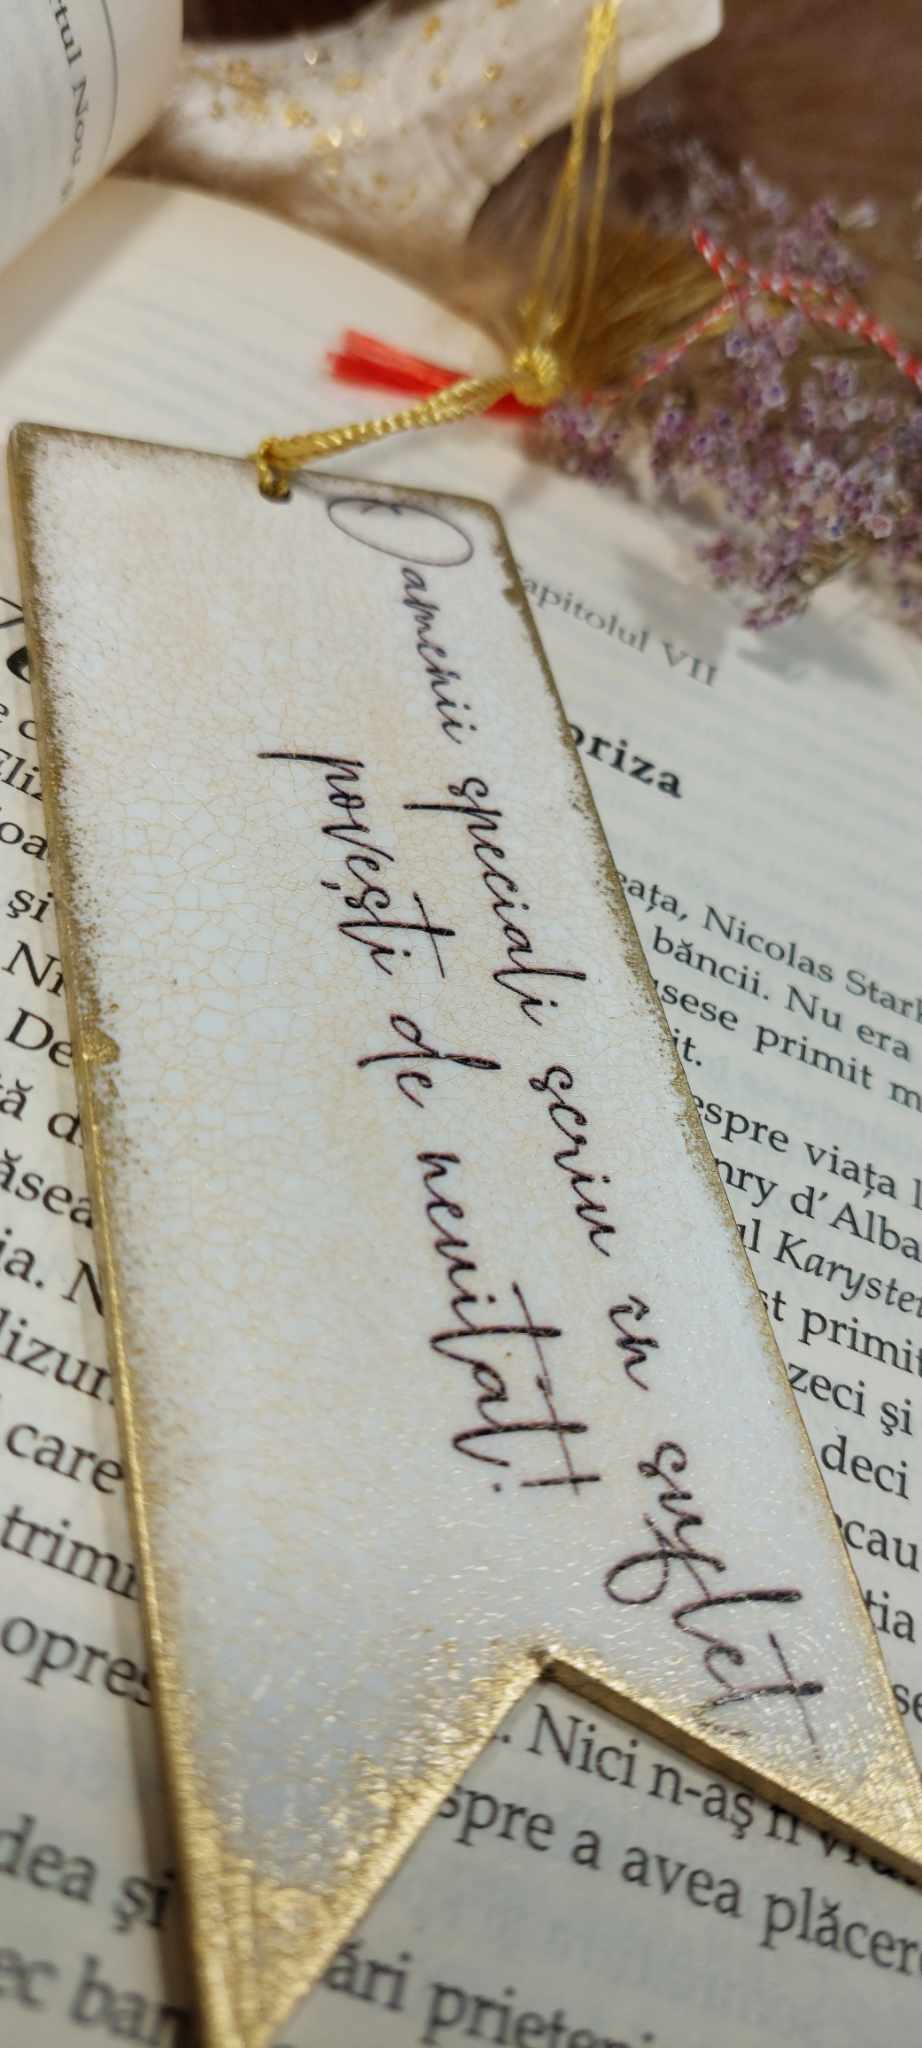 Oamenii speciali scriu în suflet
povești de neuitat!
Nou
apitolul VII
oriza
eața, Nicolas Stark
băncii. Nu era
sese primit m
it.
espre viața l
nry d'Alba
ul Karystei
st primit
zeci şi
deci
ecau
ția
se
Nici n-aş
spre a avea plăcere
ări prieteni
Eliz
oa
şi
Ni
De
tă d
ăsea
ia. N
lizur
care
trimi
opres
dea şi
ec ban